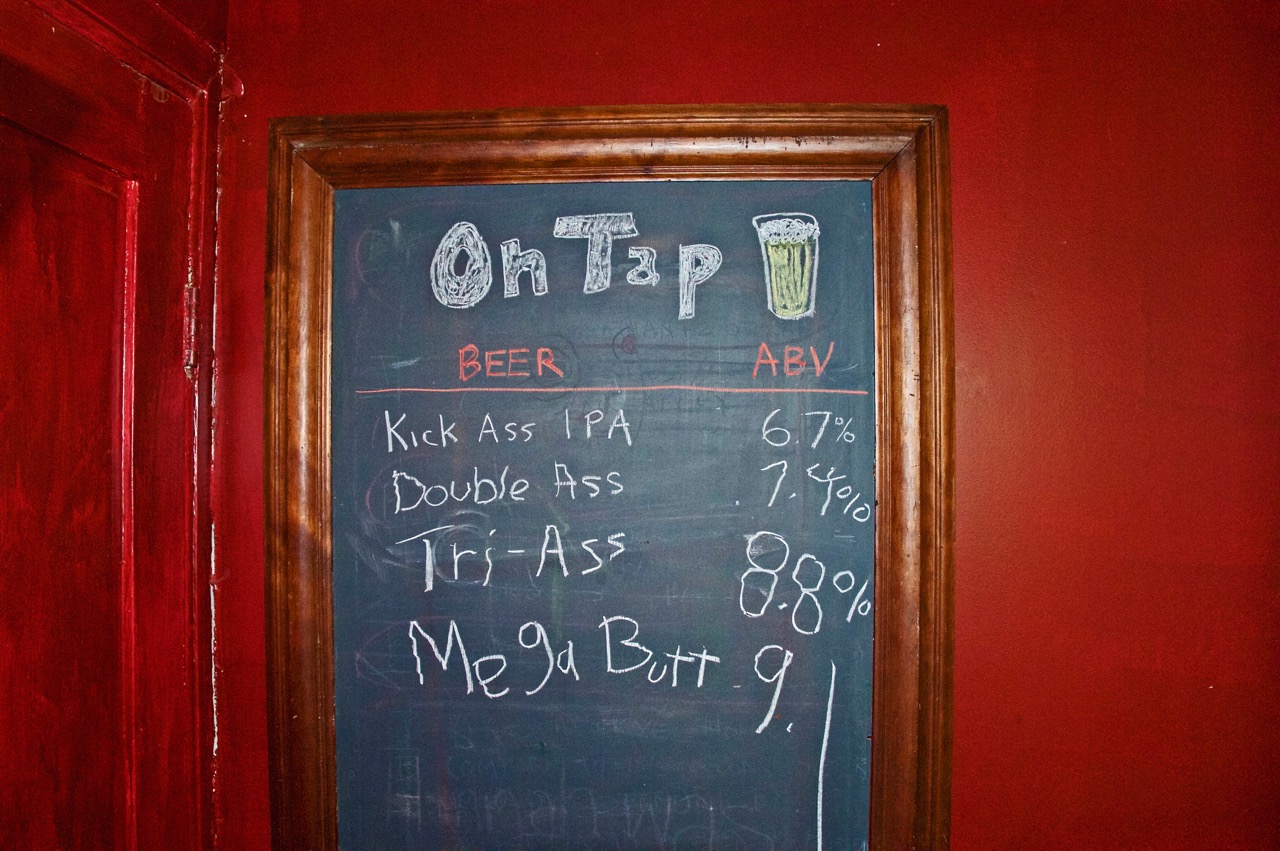 On Tap
BEER ABV
Kick Ass IPA 6.7%
Double Ass 7.4%
Tri-Ass 8.8%
Mega Butt 9.